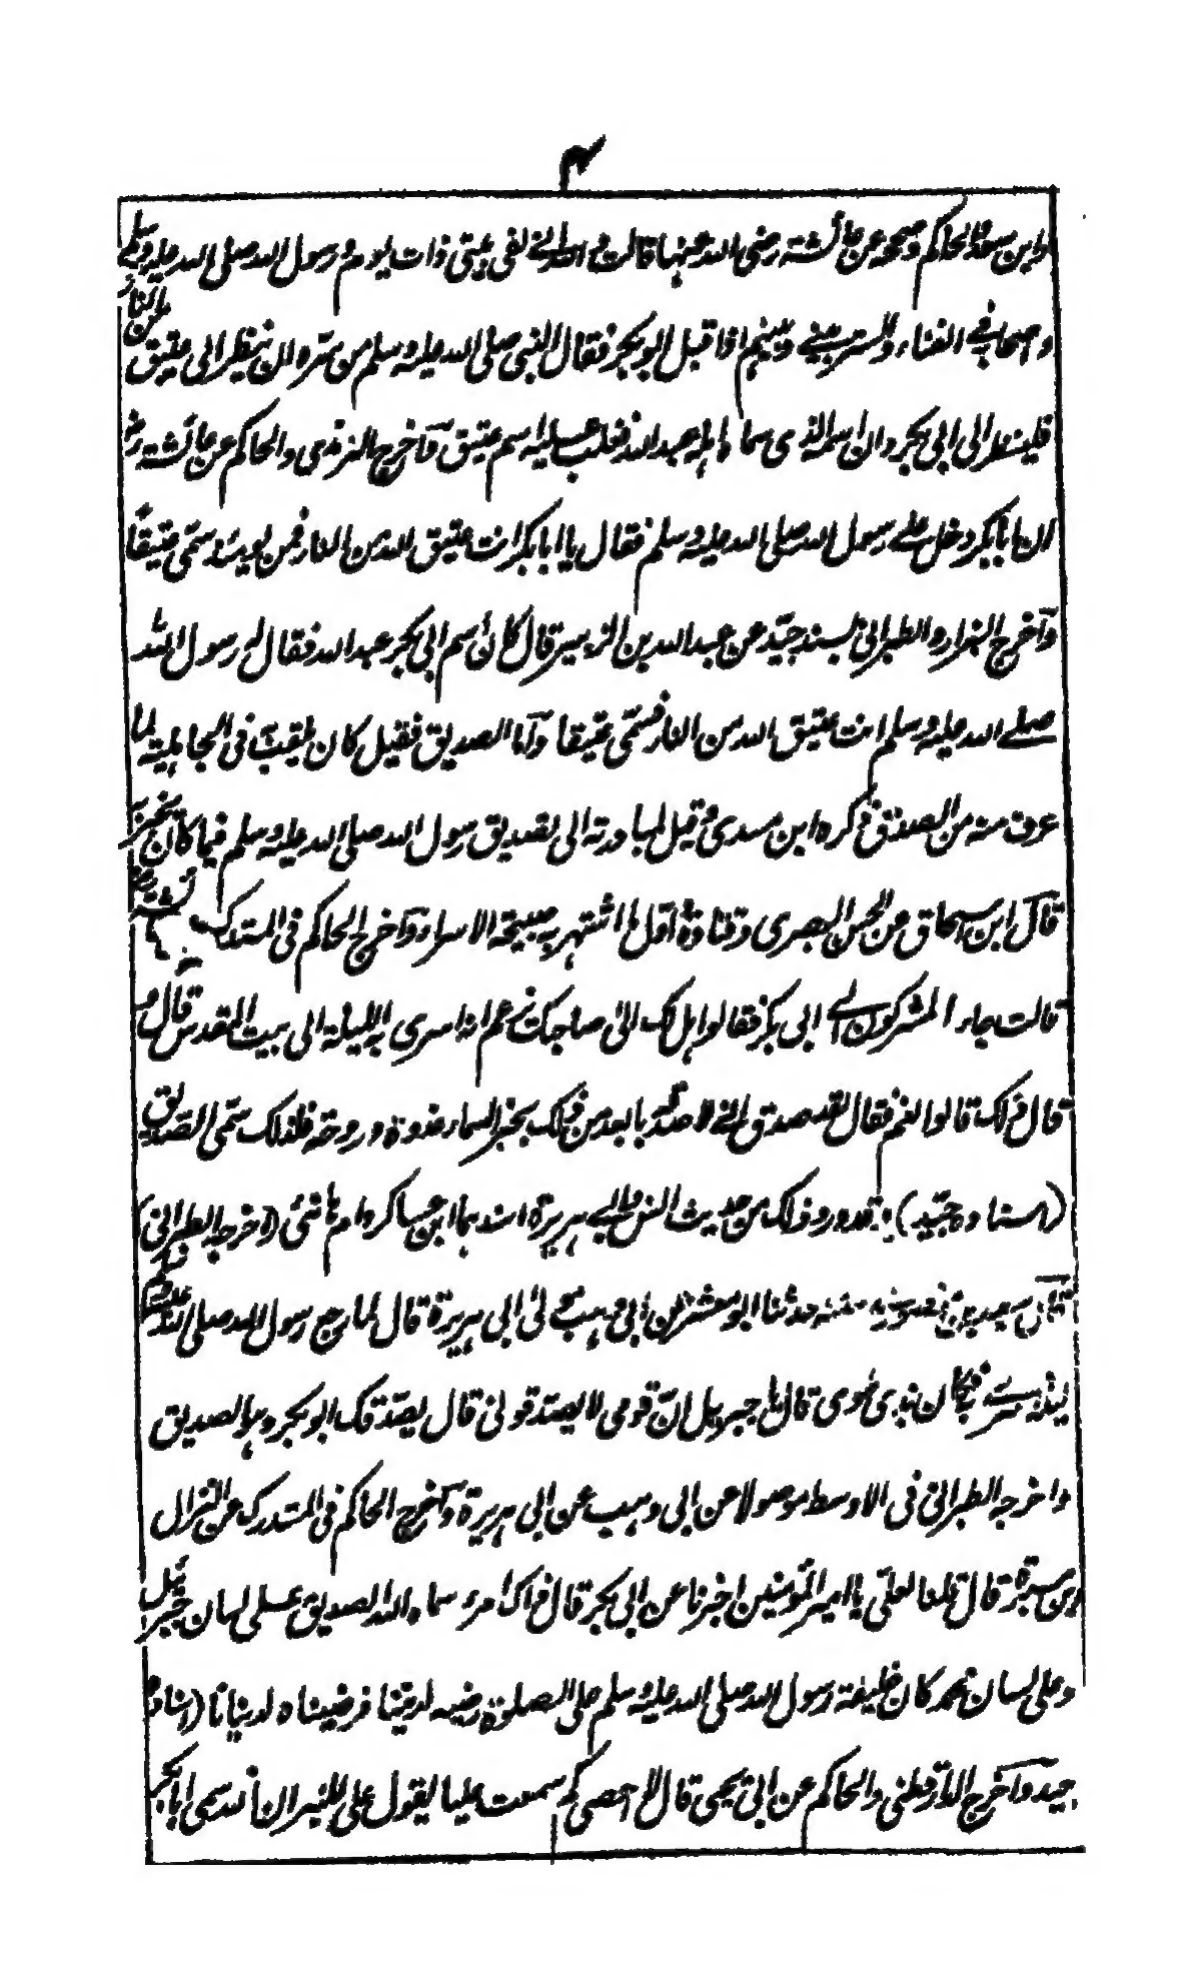 ۴
وابن سعد والحاكم وصححه عن عائشة رضى الله عنها قالت والله انى لفى بيتى ذات يوم ورسول الله صلى الله عليه وسلم
واصحابه فى الفناء والستر بينى وبينهم اذا قبل ابو بكر فقال النبى صلى الله عليه وسلم من سره ان ينظر الى عتيق من النار
فلينظر الى ابى بكر وان اسمه الذى سماه اهله عبد الله فغلب عليه اسم عتيق وآخرج الترمذى والحاكم عن عائشة رض
ان ابا بكر دخل على رسول الله صلى الله عليه وسلم فقال يا ابا بكر انت عتيق الله من النار فمن يومئذ سمّى عتيقًا
وآخرج البزار والطبرانى بسند جيّد عن عبد الله بن الزبير قال كان اسم ابى بكر عبد الله فقال له رسول الله
صلے الله عليه وسلم انت عتيق الله من النار فسمّى عتيقا وآما الصديق فقيل كان يلقب به فى الجاهلية لما
عرف منه من الصدق ذكره ابن مسدى وقيل لمبادرته الى تصديق رسول الله صلى الله عليه وسلم فيما كان يخبر به
قآل ابن اسحاق عن الحسن البصرى وقتادة واوّل ما اشتهر به صبيحة الاسراء وآخرج الحاكم فى المستدرك عن عائشة رض
قالت جاء المشركون الے ابى بكر فقالوا هل لك الى صاحبك يزعم انه اسرى به الليلة الى بيت المقدس قآل و
قال ذلك قالوا نعم فقال لقد صدق انى لاصدقه بابعد من ذلك بخبر السماء غدوة وروحة فلذلك سمّى الصديق
(اسناده جيّد) وقد ورد ذلك من حديث انس وابے هريرة اسندهما ابن عساكر وام هانئى (اخرجه الطبرانى)
قآل سعيد بن منصور فى سننه حدثنا ابو معشر عن ابى وهب مولى ابى هريرة قال لما رجع رسول الله صلى الله عليه وسلم
ليلة اسرے به فكان بذى طوى قال يا جبريل انّ قومى لا يصدقونى قال يصدّقك ابو بكر وهو الصديق
واخرجه الطبرانى فى الاوسط موصولا عن ابى وهب عن ابى هريرة وآخرج الحاكم فى المستدرك عن النزال
ابن سبرة قال قلنا لعلىّ يا امير المؤمنين اخبرنا عن ابى بكر قال ذاك امرء سماه الله الصديق على لسان جبرئيل
وعلى لسان محمد كان خليفة رسول الله صلى الله عليه وسلم على الصلوة رضيه لديننا فرضيناه لدنيانا (اسناده
جيّد) وآخرج الدارقطنى والحاكم عن ابى يحيى قال لا احصى كم سمعت عليا يقول على المنبر ان الله سمى ابا بكر